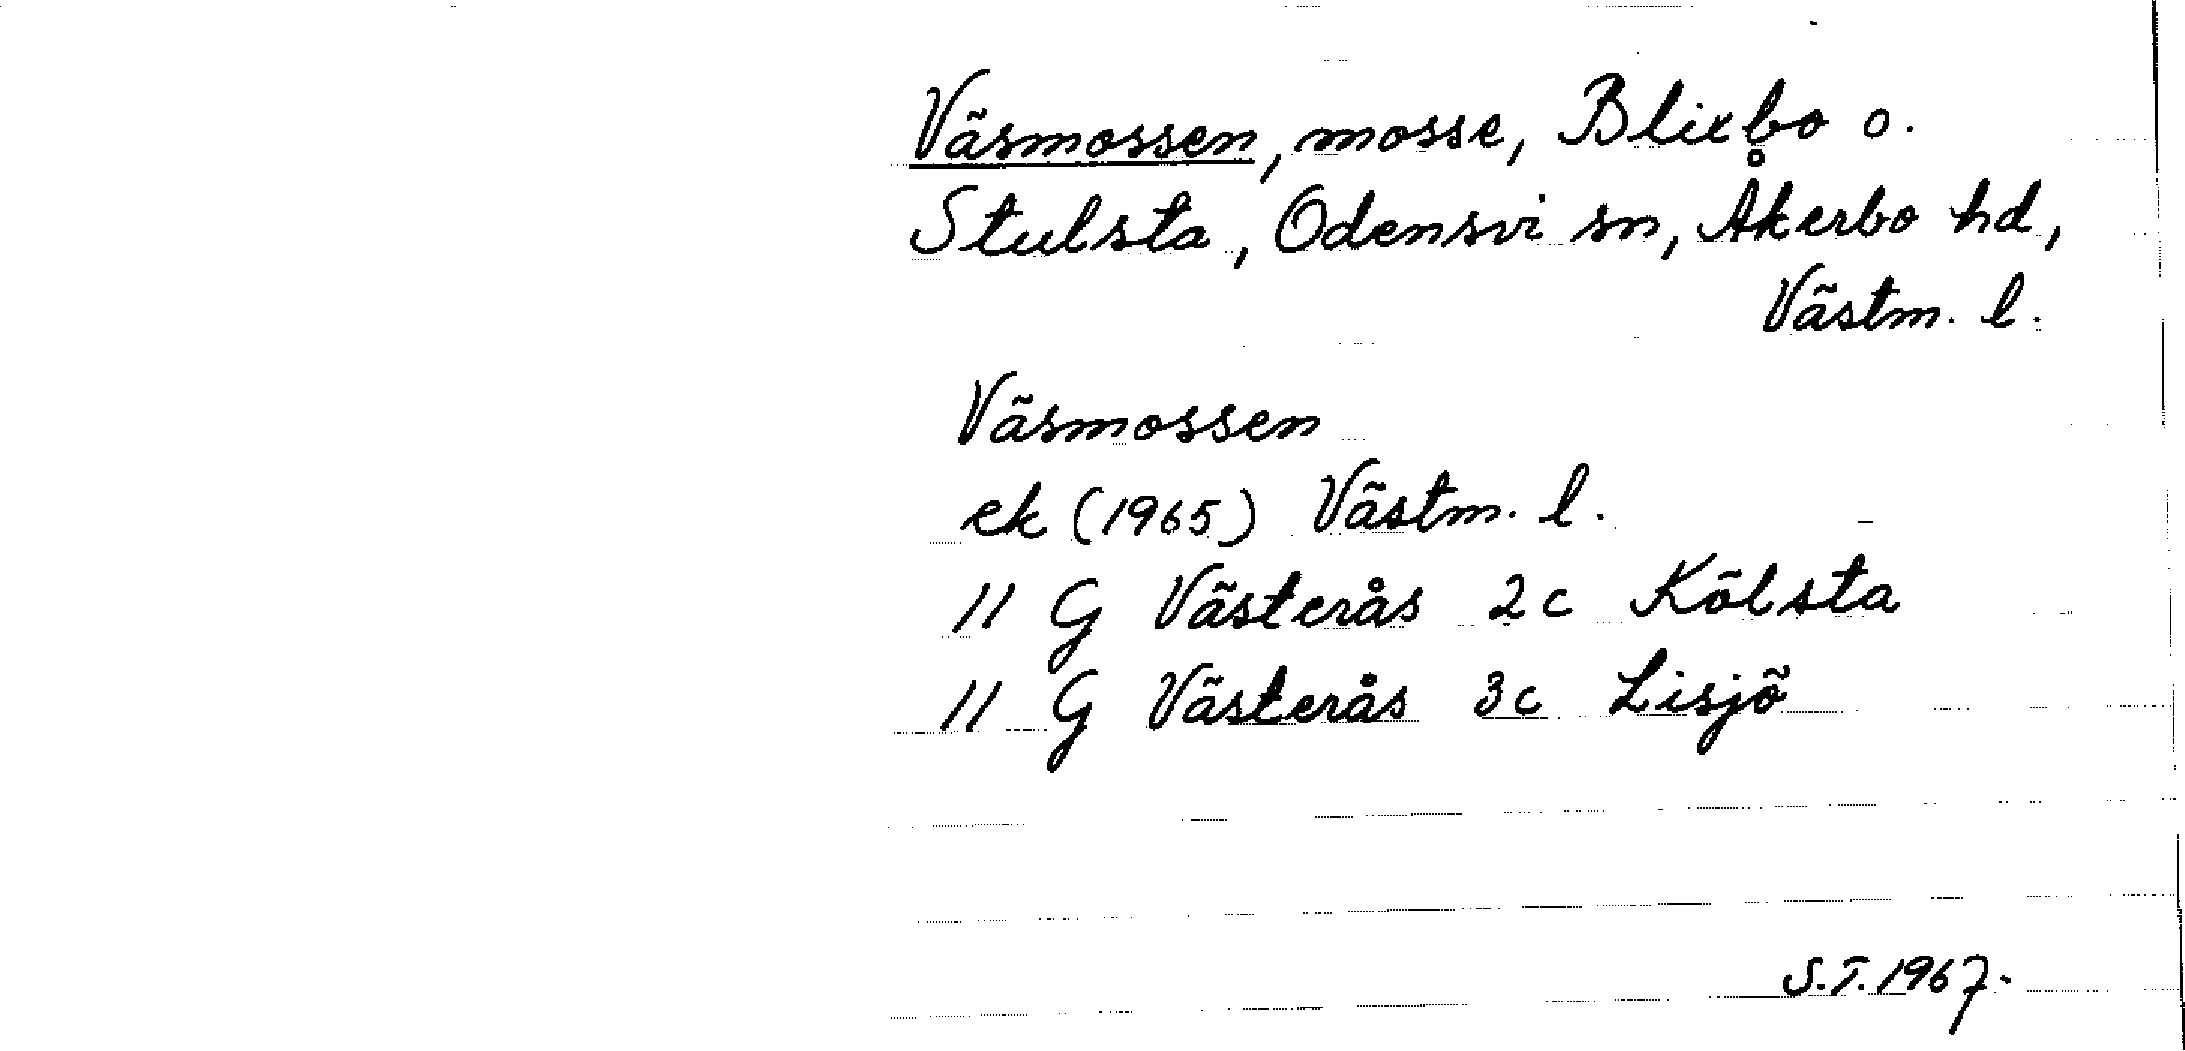 Väsmossen, mosse, Blixbo o.
Stulsta, Odensvi sn, Åkerbo hd,
Västm. l.
Väsmossen
ek (1965) Västm. l.
11 G Västerås 2c Kölsta
11 G Västerås 3c Lisjö
S.T. 1967.